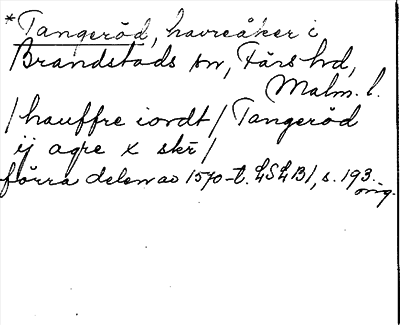 *Tangeröd, havreåker i
Brandstads sn, Färs hd,
Malm. l.
/hauffre iordt/ Tangeröd
ij agre x skr/
förra delen av 1570-t. LSLB1, s. 193.
orig.